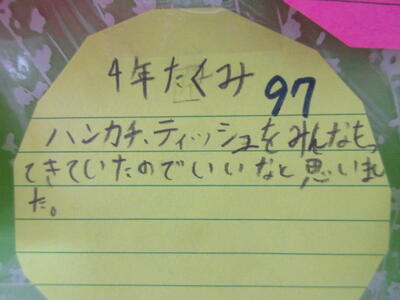 4年たくみ
97
ハンカチ、ティッシュをみんなもっ
てきていたのでいいなと思いまし
た。